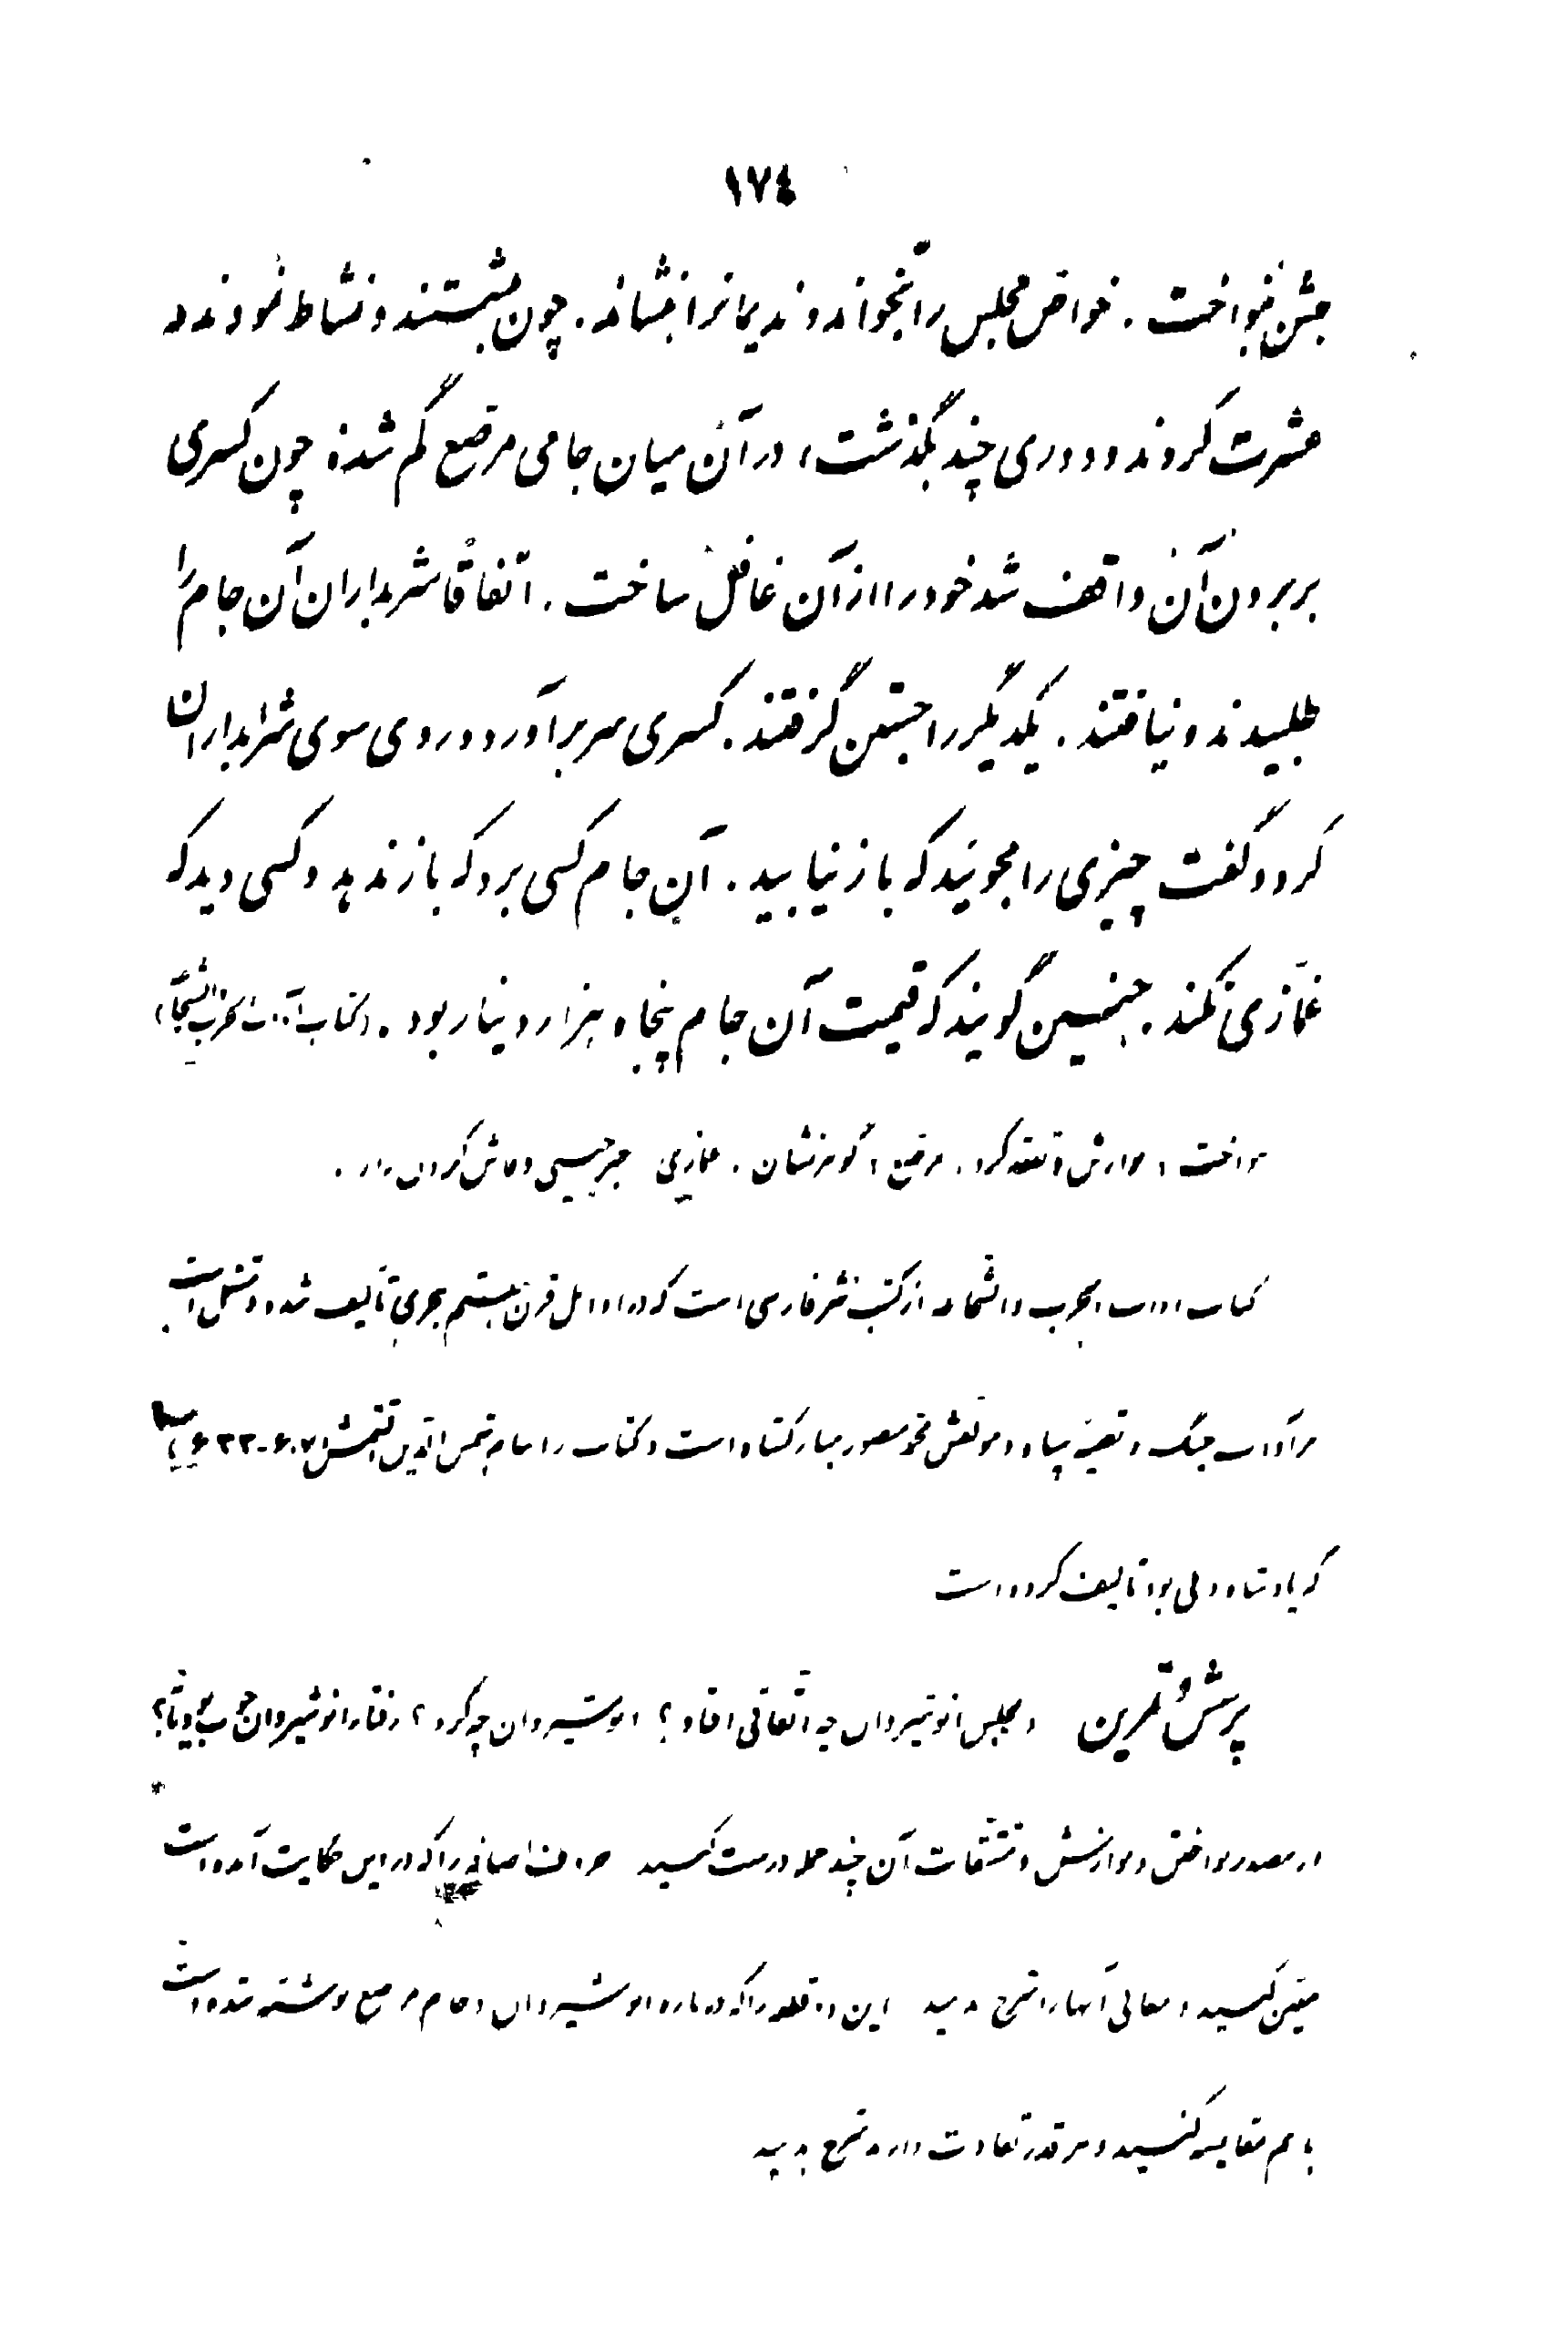 ١٧٤
جشن بنواخت . خواص مجلس را بخواند و ندیمانرا بنشاند . چون بنشستند و نشاط نمودند و
عشرت کردند و دوری چند بگذشت ، در آن میان جامی مرصّع گم شد ، چون کسری
بر بردن آن واقف شد خود را از آن غافل ساخت . اتفاقاً شرابداران آن جام را
طلبیدند و نیافتند . یکدیگر را جستن گرفتند . کسری سر برآورد و روی سوی شرابداران
کرد و گفت چیزی را مجوئید که باز نیابید . آن جام کسی برد که باز ندهد و کسی دید که
غمّازی نکند . چنین گویند که قیمت آن جام پنجاه هزار دینار بود . (کتاب آداب الحرب والشجاعه)
نواخت : نوازش و تفقد کرد . مرصّع : گوهرنشان . غمازی : خبرچینی و فاش کردن راز .
کتاب آداب الحرب والشجاعه از کتب نثر فارسی است که در اوایل قرن هفتم هجری تألیف شده و مشتمل است
بر آداب جنگ و تعبیهٔ سپاه و مؤلفش محمد منصور مبارکشاه است و کتاب را بنام شمس الدین التتمش (۶۰۷-۶۳۳)
که پادشاه دهلی بود تألیف کرده است
پرسش و تمرین در مجلس انوشیروان چه اتفاقی افتاد ؟ انوشیروان چه کرد ؟ رفتار انوشیروان خوب بود یا بد ؟
از مصدر نواختن و نوازش و مشتقات آن چند جمله درست کنید حروف اضافه را که در این حکایت آمده است
معین کنید و معانی آنها را شرح دهید این دو قطعه را که درباره انوشیروان و جام مرصع نوشته شده است
با هم مقایسه کنید و هر قدر تفاوت دارد شرح بدهید